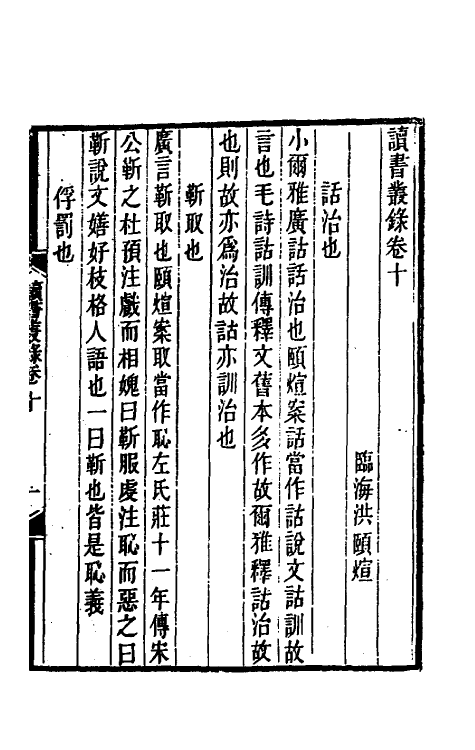 讀書叢錄卷十
臨海洪頤煊
話治也
小爾雅廣詁話治也頤煊案話當作詁說文詁訓故
言也毛詩詁訓傳釋文舊本多作故爾雅釋詁治故
也則故亦爲治故詁亦訓治也
靳取也
廣言靳取也頤煊案取當作恥左氏莊十一年傳宋
公靳之杜預注戲而相媿曰靳服虔注恥而惡之曰
靳說文嬉好枝格人語也一曰靳也皆是恥義
俘罰也
讀書叢錄卷十
一